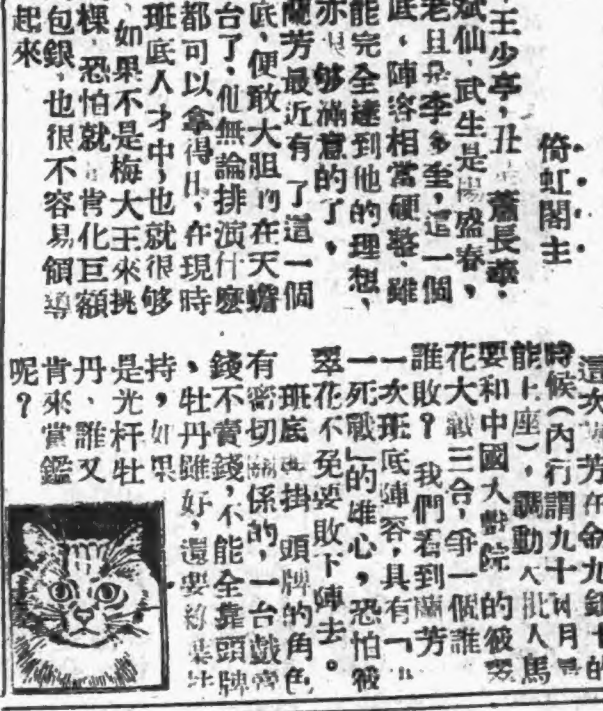 倚虹閣主
王少亭,丑 蕭長華,
斌仙,武生是楊盛春,
老旦是李多奎,這一個
底,陣容相當硬整,雖
能完全達到他的理想,
亦很够滿意的了,
蘭芳最近有了這一個
底,便敢大胆的在天蟾
台了,他無論排演什麼
都可以拿得出,在現時
班底人才中,也就很够
,如果不是梅大王來挑
棵,恐怕就 肯化巨額
包銀,也很不容易領導
起來
這次蘭芳在金九銀十的
時候(內行謂九十兩月最
能上座),調動大批人馬
要和中國大戲院的筱翠
花大戰三合,爭一個誰
誰敗?我們看到蘭芳
一次班底陣容,具有「
一死戰」的雄心,恐怕筱
翠花不免要敗下陣去。
班底與掛頭牌的角色
有密切關係的,一台戲賣
錢不賣錢,不能全靠頭牌
,牡丹雖好,還要綠葉扶
持,如果
是光杆牡
丹、誰又
肯來賞鑑
呢?